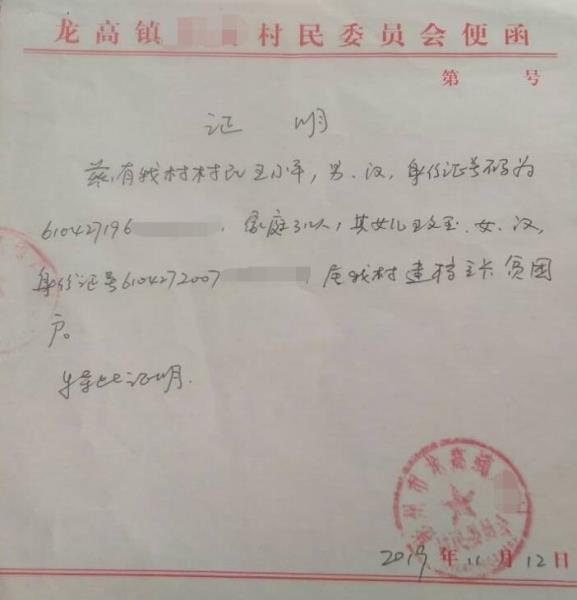 龙高镇 村民委员会便函
第 号
证 明
兹有我村村民王小军，男、汉，身份证号码为
610427196 ，家庭3口人，其女儿王文玉、女、汉，
身份证号6104272007 ，属我村建档立卡贫困
户。
特此证明.
2019年11月12日